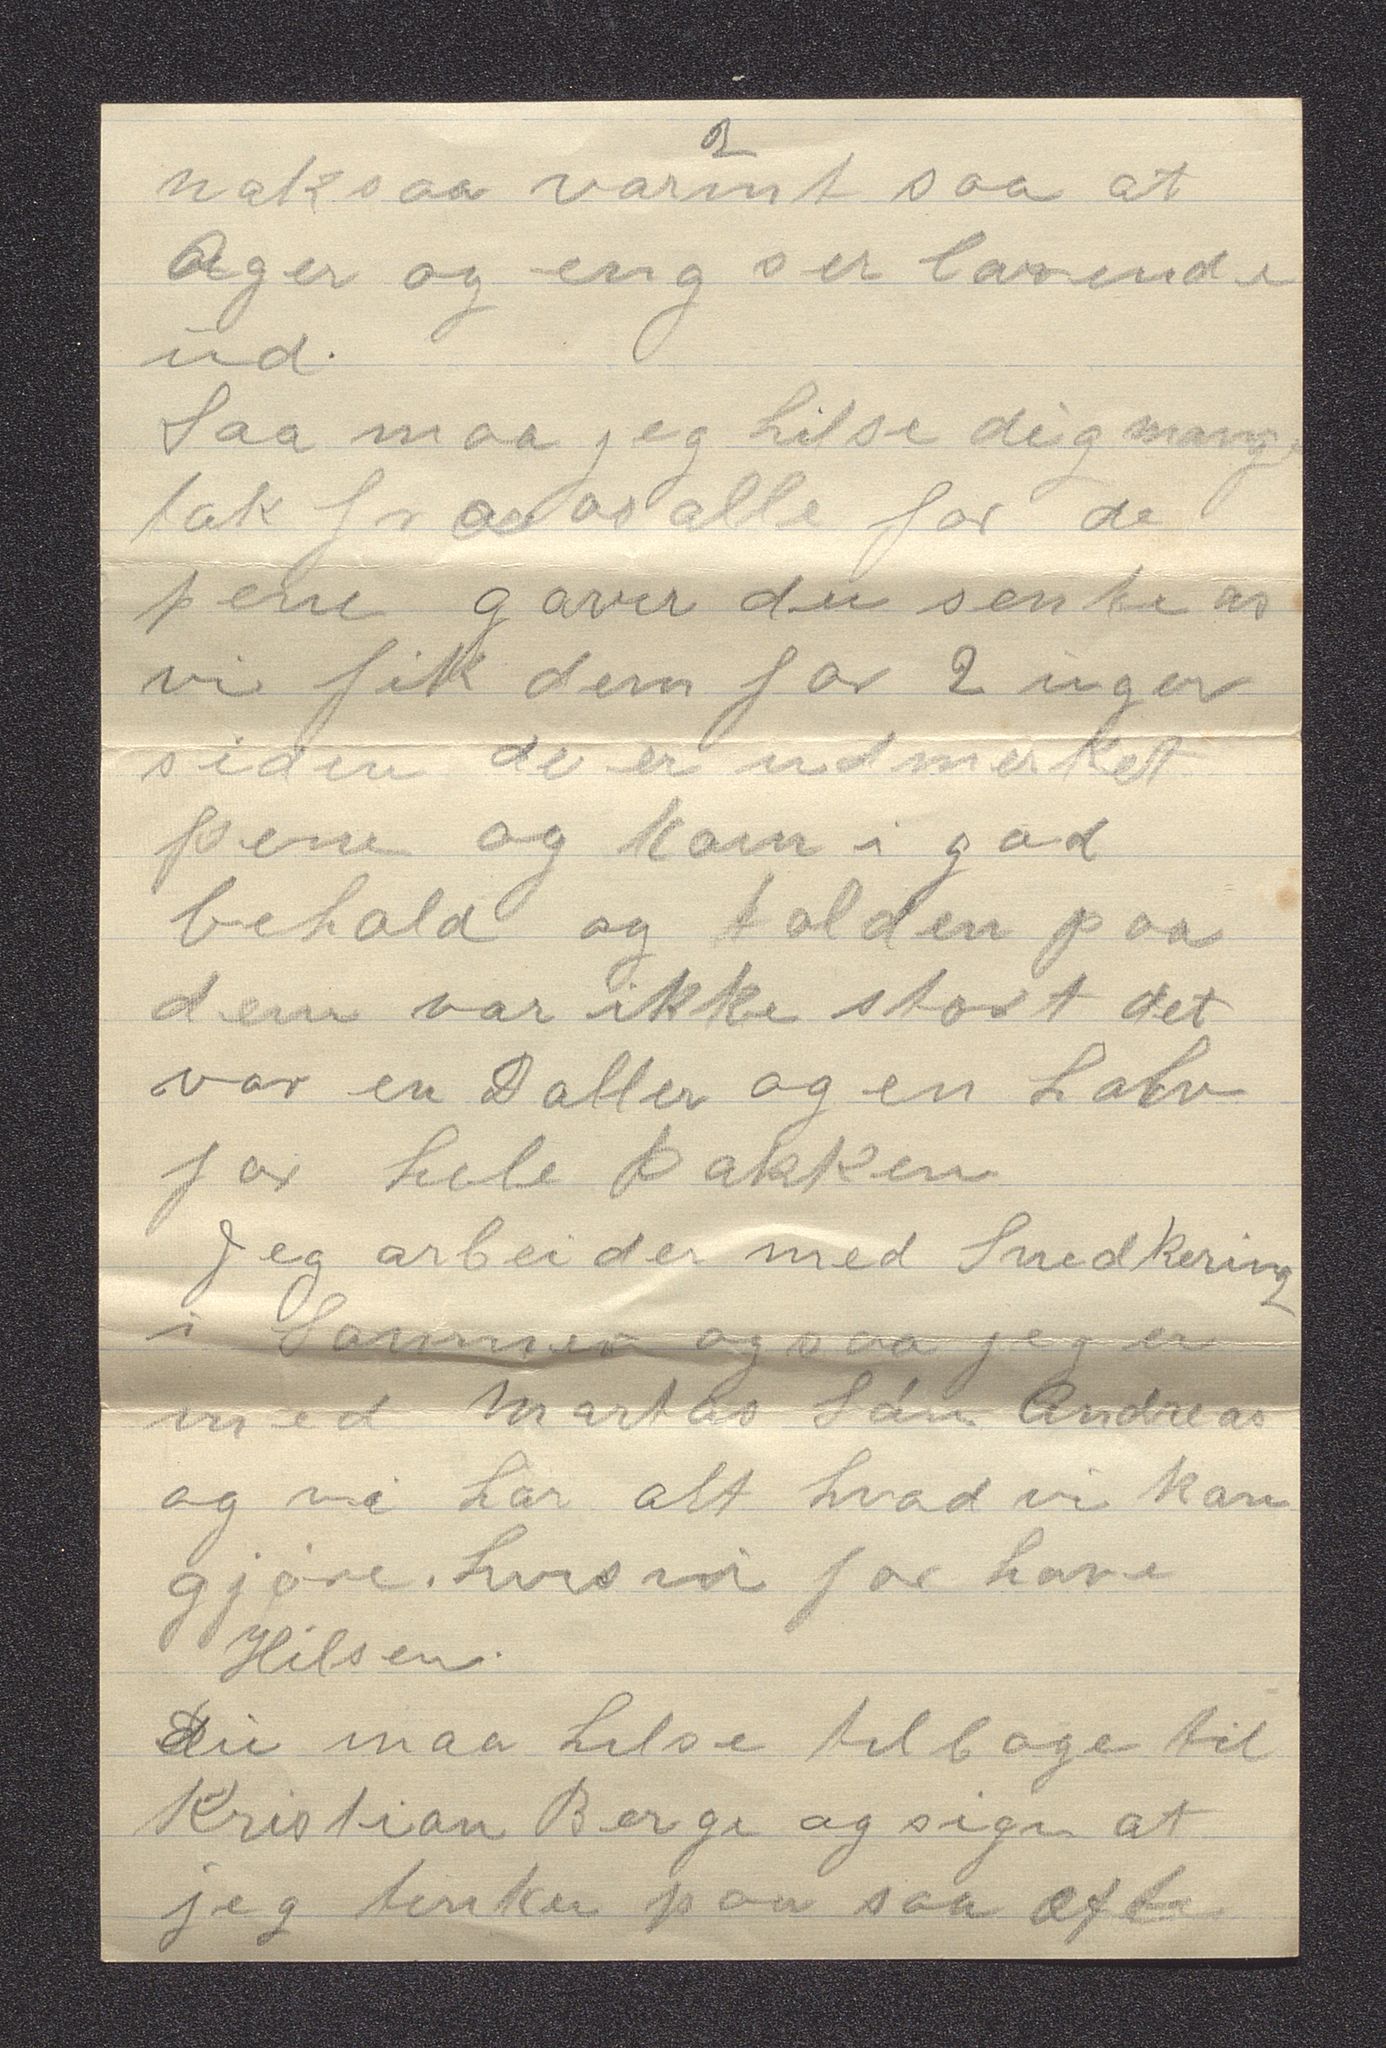 2
naksaa varmt saa at
Ager og eng ser lovende
ud.
Saa maa jeg hilse dig mange
tak fra os alle for de
pene gaver du sente os
vi fik dem for 2 uger
siden de er udmerket
pene og kom i god
behold og tolden paa
dem var ikke stort det
var en Daller og en halv
for hele pakken
Jeg arbeider med Snedkering
i Sommer ogsaa jeg er
med Martas Søn Andreas
og vi har alt hvad vi kan
gjøre. hus vi for have
Hilsen.
Du maa hilse tilbage til
Kristian Berge og sige at
jeg tenker paa saa ofte